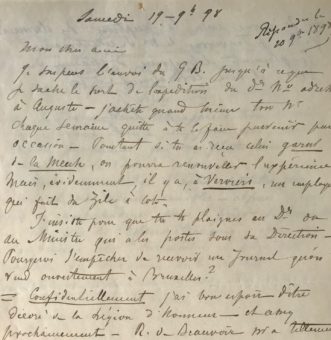 Samedi 19 - 9b 98
Répondu le
20 9bre 1898
Mon cher ami
Je suspens l'envoi du G B. jusqu'à ce que
je sache le sort de l'expédition du Dr No adressé
à Auguste - j'achète quand même ton No
chaque semaine quitte à te le faire parvenir par
occasion - Pourtant si tu as reçu celui garni
de la Mèche, on pourra renouveler l'expérience
Mais, évidemment, il y a, à Verviers, un employé
qui fait du Zèle à côté.
J'insiste pour que tu te plaignes au Dr ou
au Ministre qui a les postes sous sa Direction -
Pourquoi t'empêcher de recevoir un journal qu'on
vend ouvertement à Bruxelles?
= Confidentiellement j'ai bon espoir d'être
décoré de la Légion d'Honneur - et assez
prochainement - R. de Beauvoir m'a tellement